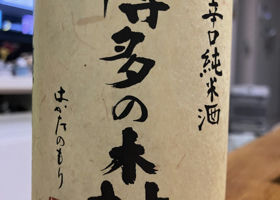 辛口純米酒
博多の森
はかたのもり